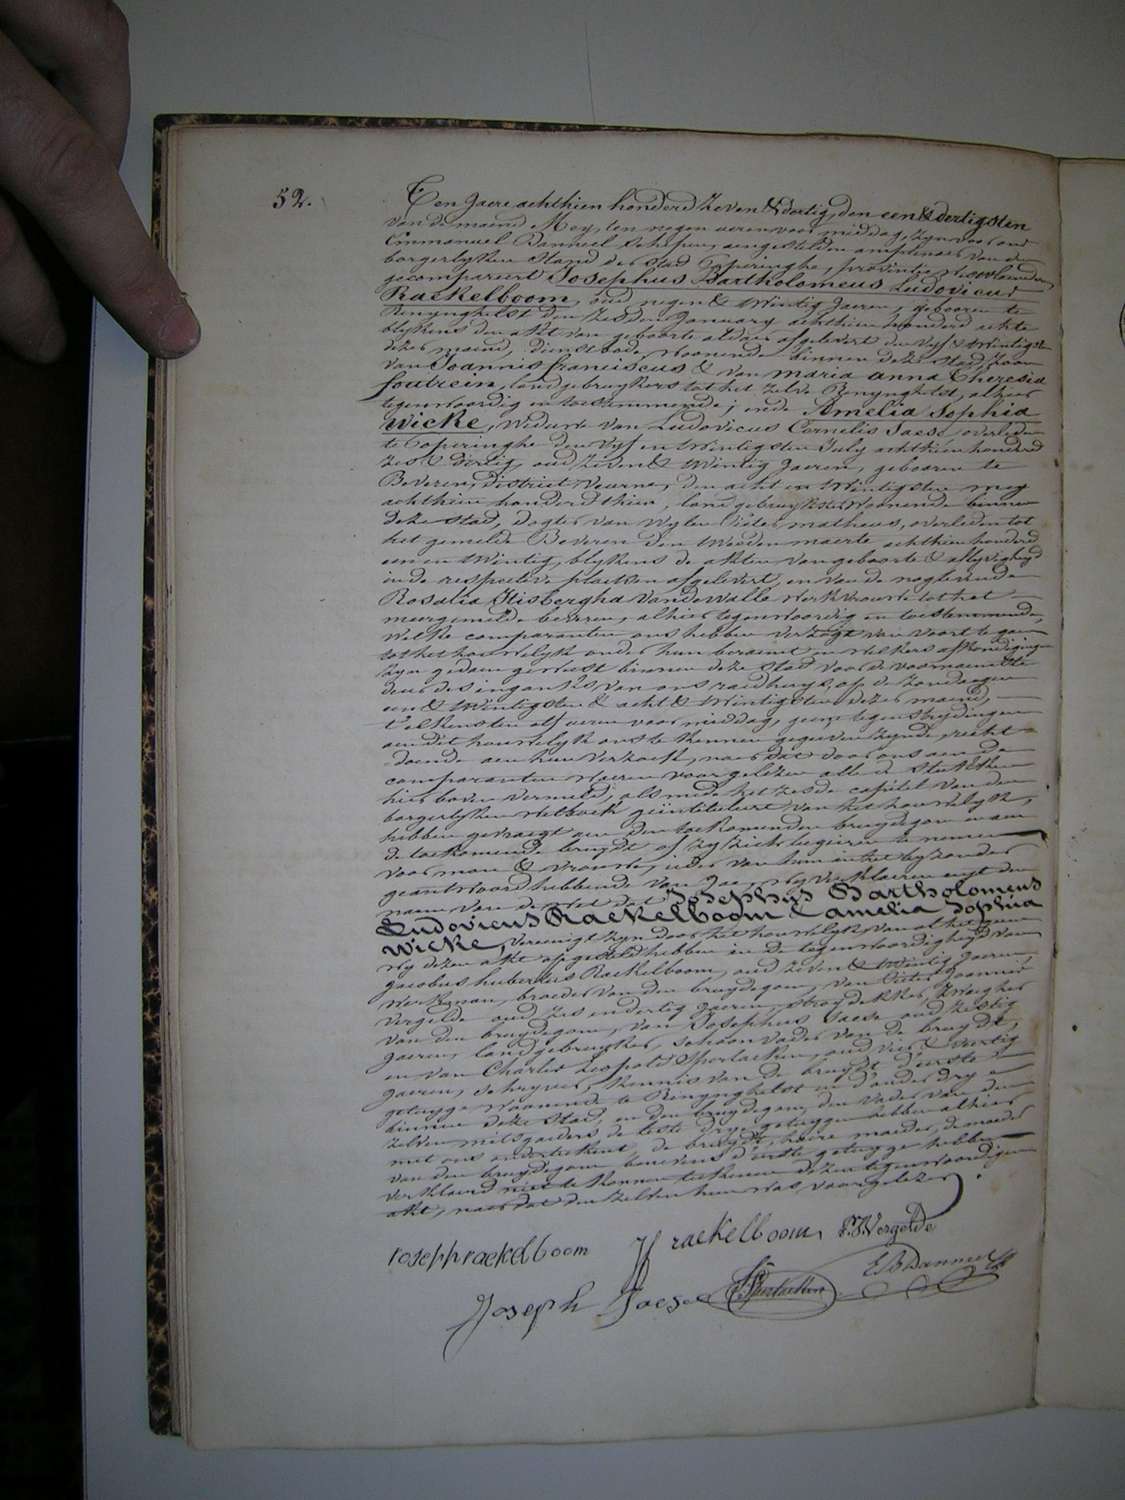 52.
Ten Jaere achthien honderd zeven & dertig, den een & dertigsten
van de maend Mey, ten negen uren voor middag, zyn voor ons
Emmanuel Danneel Schepen, aengestelden amptenaer van den
borgerlyken Stand der Stad Poperinghe, provintie Westvlaenderen
gecompareert Josephus Bartholomeus Ludovicus
Raekelboom, oud negen & twintig Jaeren, gebooren te
Renynghelst den zesden January achthien honderd achte
blykens den akt van geboorte aldaer afgelevert den vyf & twintigsten
dezer maend, dienstbode, woonende binnen deze Stad, zoon
van Joannis franciscus & van Maria Anna Theresia
foutrein, landgebruykers tot het zelve Renynghelst, alhier
tegenwoordig en toestemmende; ende Amelia Sophia
Wicke, Weduwe van Ludovicus Cornelis Jaese, overleden
te Poperinghe den vyf en twintigsten July achthien honderd
zes & dertig, oud zeven & twintig Jaeren, gebooren te
Beveren, district Veurne, den acht en twintigsten mey
achthien honderd thien, landgebruykster woonende binnen
deze stad, dogter van wylen Pieter matheus, overleden tot
het gemelde Beveren den tweeden maerte achthien honderd
een en twintig, blykens de akten van geboorte & aflyvigheyd
in de respective plaetsen afgelevert, en van de noglevende
Rosalia Gisbergha Vandewalle Werkvrouwe tot het
meergemelde beveren, alhier tegenwoordig en toestemmende,
Welke comparanten ons hebben verzogt van voort te gaen
tot het houwelyk onder hun beraemt en welkers afkondigingen
zyn gedaen geweest binnen deze stad voor de voornaemste
deur des ingank's van ons raedhuys, op de zondagen
een & twintigsten & acht & twintigsten dezer maend,
t'elkensten elf uren voor middag, geene tegenstrydingen
aen dit houwelyk ons te kennen gegeven zynde, recht
doende aen hun verzoek, naer dat door ons aen de
comparanten waeren voorgelezen alle de stukken
hier boven vermeld, als mede het zesde capittel van den
borgerlyken wetboek geïntituleert van het houwelyk,
hebben gevraegt aen den toekomenden bruydegom en aen
de toekomende bruydt of zy zich begeeren te nemen
voor man & vrouwe, ieder van hun in het byzonder
geantwoord hebbende van Jae, wy verklaeren uyt den
naem van de Wet dat Josephus Bartholomeus
Ludovicus Raekelboom & amelia Sophia
Wicke, vereenigt zyn door het houwelyk, van al het gene
wy dezen akt opgesteld hebben in de tegenwoordigheyd van
jacobus hubertus Raekelboom, oud zeven & twintig Jaeren
Werkman, broeder van den bruydegom, van Pieter Joannis
Vergelde oud zes en dertig Jaeren, stroydekker, zwaegher
van den bruydegom, van Josephus Jaese oud zestig
Jaeren, landgebruyker, schoonvader van de bruydt,
en van Charles Leopold Sperlaeken, oud vier & veertig
Jaeren, schryver, kennis van de bruydt d'eerste
getuyge woonende te Renynghelst en d'ander dry
binnen deze stad, en den bruydegom, den vader van den
zelven mitsgaeders de leste drye getuygen hebben alhier
met ons onderteekent, de bruydt, haere moeder, de moeder
van den bruydegom benevens d'eerste getuyge hebben
verklaerd niet te konnen teekenen dezen tegenwoordigen
akt, naer dat den zelven hun was voorgelezen.
Joseph raekelboom JF raekelboom P.J. Vergelde
Joseph Jaese Sperlaeken E B Danneel